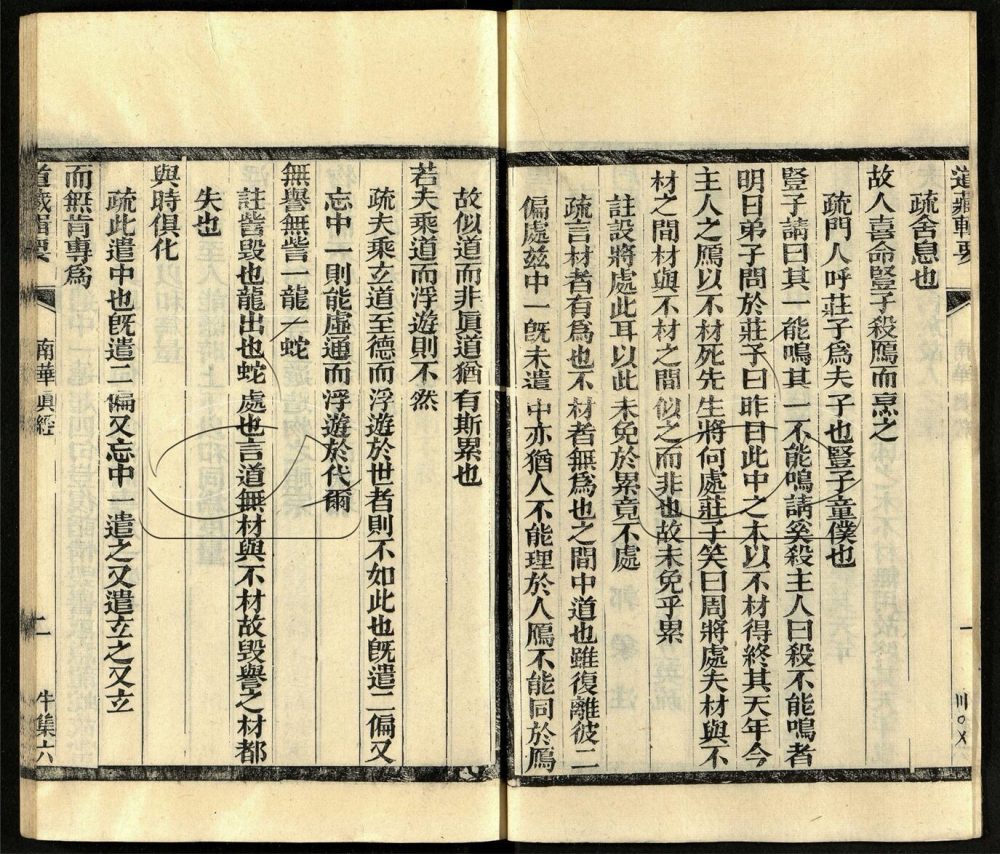 道藏輯要
一
疏舍息也
故人喜命豎子殺鴈而烹之
疏門人呼莊子爲夫子也豎子童僕也
豎子請曰其一能鳴其一不能鳴請奚殺主人曰殺不能鳴者
明日弟子問於莊子曰昨日此中之木以不材得終其天年今
主人之鴈以不材死先生將何處莊子笑曰周將處夫材與不
材之間材與不材之間似之而非也故未免乎累
註設將處此耳以此未免於累竟不處
疏言材者有爲也不材者無爲也之間中道也雖復離彼二
偏處兹中一旣未遣中亦猶人不能理於人鴈不能同於鴈
故似道而非眞道猶有斯累也
若夫乘道而浮遊則不然
疏夫乘玄道至德而浮遊於世者則不如此也旣遣二偏又
忘中一則能虛通而浮遊於代爾
無譽無訾一龍一蛇
註訾毀也龍出也蛇處也言道無材與不材故毀譽之材都
失也
與時俱化
疏此遣中也旣遣二偏又忘中一遣之又遣玄之又玄
而無肯專爲
道藏輯要 南華眞經 二 牛集六